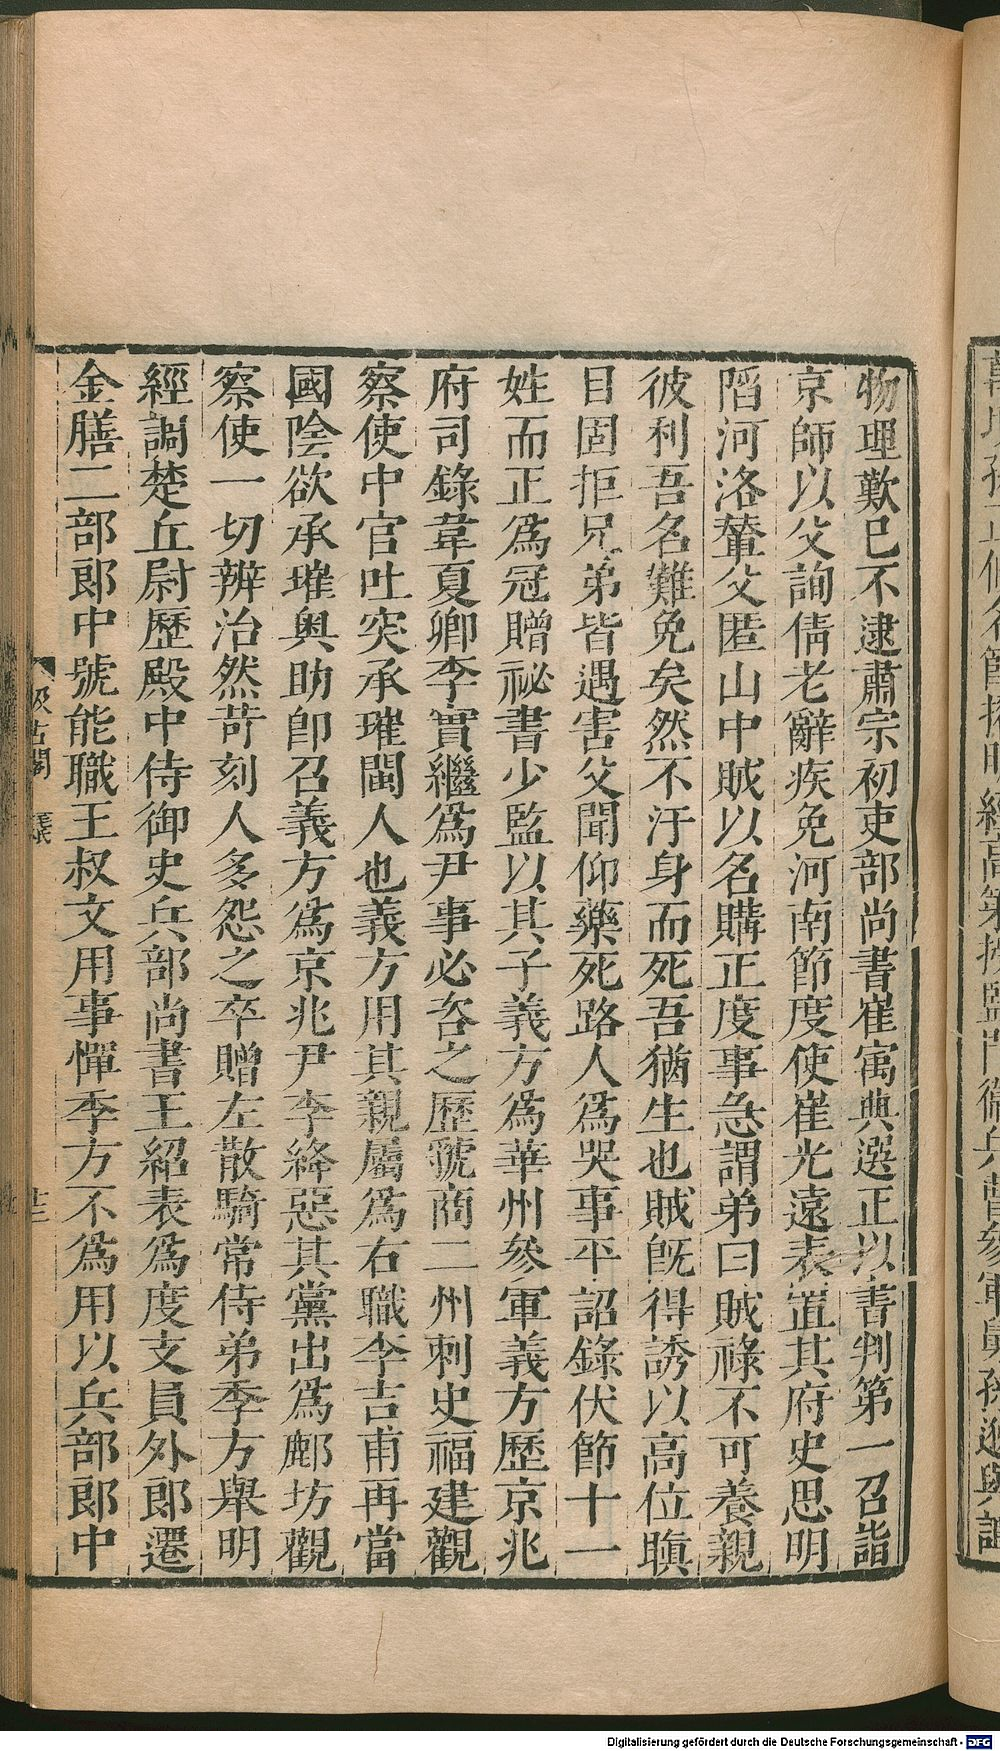 物理歎已不逮肅宗初吏部尚書崔寓典選正以書判第一召詣
京師以父詢倩老辭疾免河南節度使崔光遠表置其府史思明
陷河洛輦父匿山中賊以名購正度事急謂弟曰賊祿不可養親
彼利吾名難免矣然不汙身而死吾猶生也賊旣得誘以高位瞋
目固拒兄弟皆遇害父聞仰藥死路人爲哭事平詔錄伏節十一
姓而正爲冠贈祕書少監以其子義方爲華州參軍義方歷京兆
府司錄韋夏卿李實繼爲尹事必咨之歷虢商二州刺史福建觀
察使中官吐突承璀閩人也義方用其親屬爲右職李吉甫再當
國陰欲承璀奧助卽召義方爲京兆尹李絳惡其黨出爲鄜坊觀
察使一切辨治然苛刻人多怨之卒贈左散騎常侍弟季方舉明
經調楚丘尉歷殿中侍御史兵部尚書王紹表爲度支員外郎遷
金膳二部郎中號能職王叔文用事憚季方不爲用以兵部郎中
汲古閣
Digitalisierung gefördert durch die Deutsche Forschungsgemeinschaft - DFG